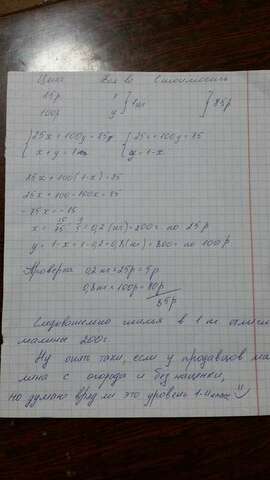 Цена Кол во Стоимость
25р x } 1кг } 85р
100р y
{ 25x + 100y = 85 { 25x + 100y = 85
x + y = 1 { y = 1 - x
25x + 100(1-x) = 85
25x + 100 - 100x = 85
-75x = -15
x = 15/75 = 1/5 = 0,2 (кг) = 200г по 25р
y = 1 - x = 1 - 0,2 = 0,8 (кг) = 800г по 100р
Проверка 0,2 кг × 25р = 5р
0,8 кг × 100р = 80р
85р
Следовательно в 1 кг
малины 200г
Ну опять таки, если у продавцов ма
лина с огорода и без наценки,
но думаю вряд ли это уровень 1-4 класс